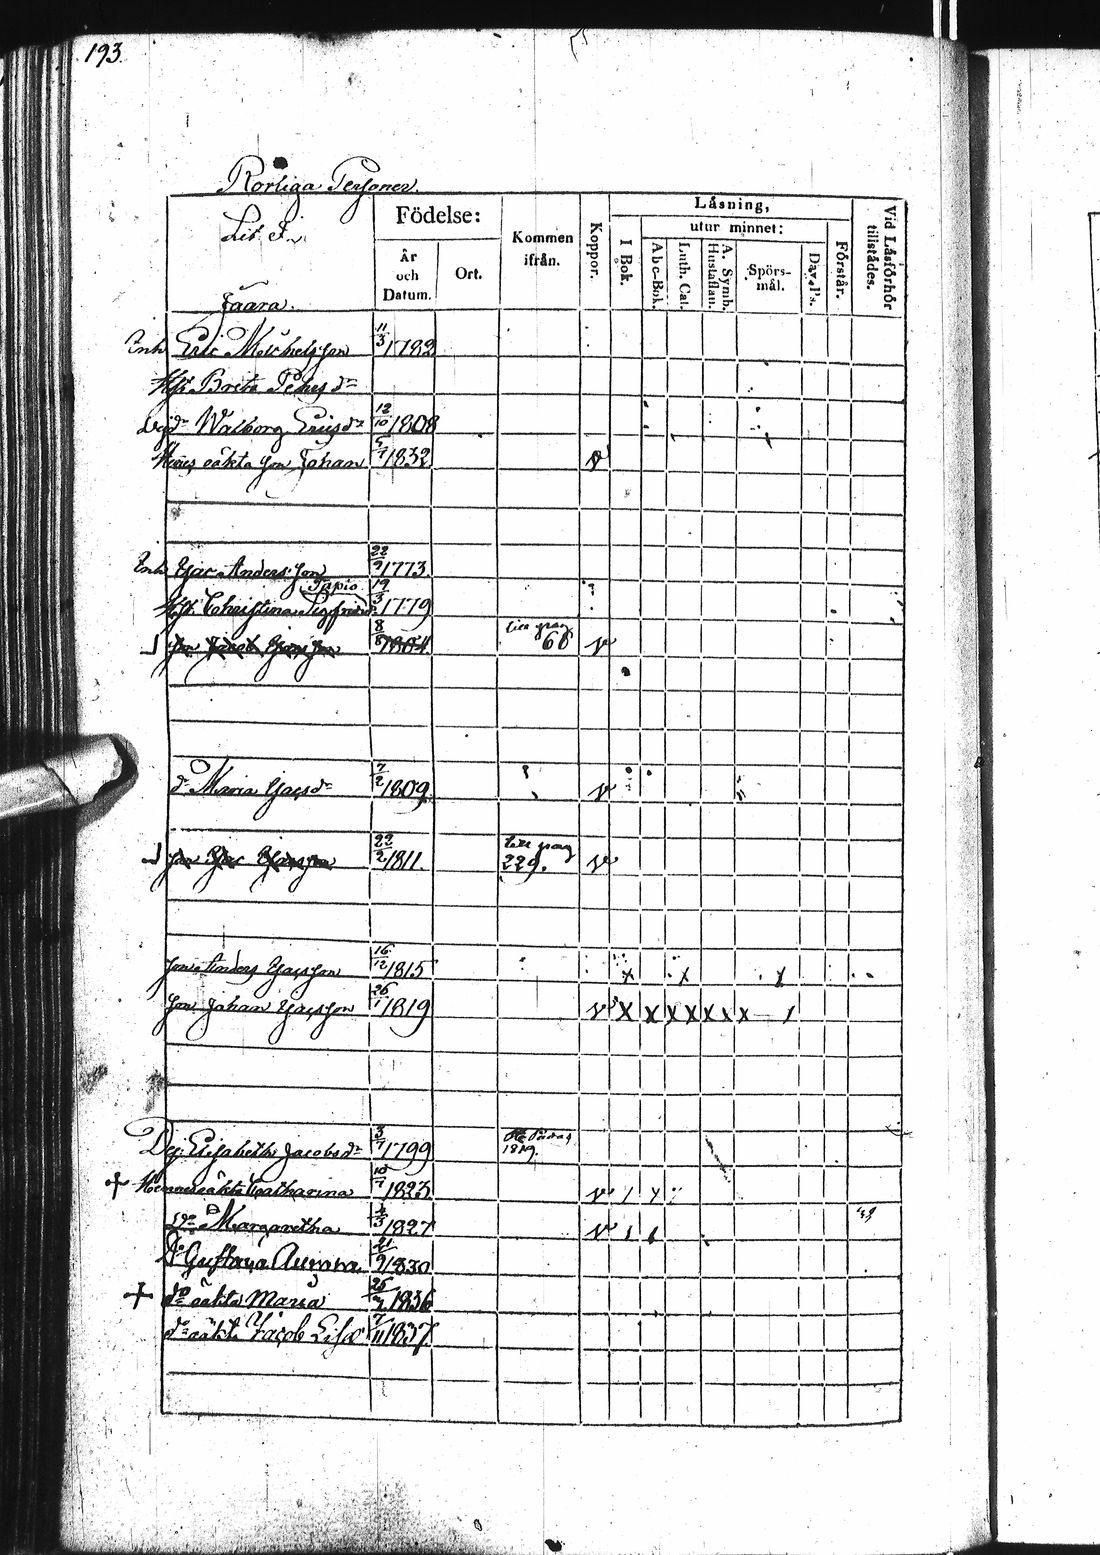 193.
Rörliga Personer.
Lit. F.
Jaara.
Födelse:
År och Datum.
Ort.
Kommen ifrån.
Koppor.
Läsning,
I Bok.
utur minnet:
Abc-Bok.
Luth. Cat.
A. Symb. Hustaflan.
Spörsmål.
Dav.l's.
Förstår.
Vid Läsförhör tillstädes.
Enh Eric Michelsson 11/3 1782
Hst. Brita Petersdr
Walborg Ericsdr 12/10 1808
Hennes oäkta Son Johan 5/7 1832 v
Enh Isac Andersson 22/9 1773.
Tapio
Hst. Christina Sigfridsdr 19/3 1779
Son Jacob Isacsson 8/8 1804 66 v
dr Maria Isacsdr 7/2 1809 v
Son Isac Isacsson 22/2 1811. 229. v
Son Anders Isacsson 16/12 1815 x x x
Son Johan Isacsson 26/1 1819 v x x x x x x x
Elisabeth Jacobsdr 3/7 1799 1819.
+ Hennes oäkta Catharina 10/7 1823 v
Do Margaretha 1827 v
Do Gustava 21/9 1830
+ do oäkta Maria 25 1836
do oäkta Jacob 7/11 1837